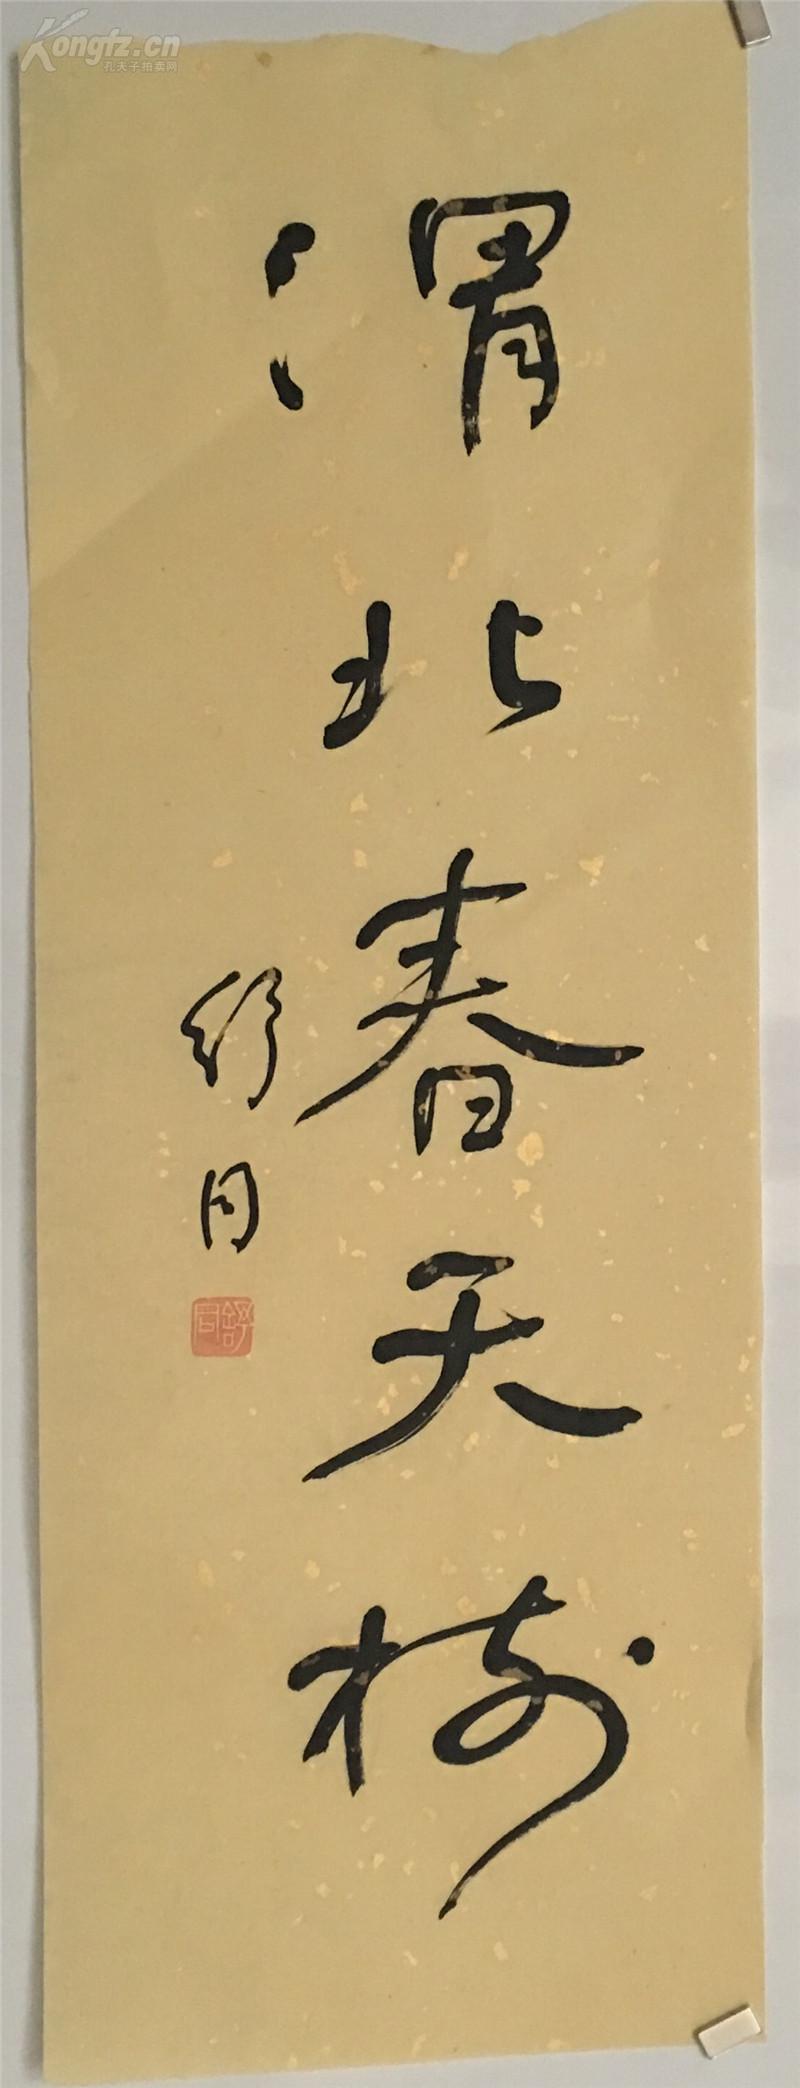 Kongfz.cn
孔夫子拍卖网
渭北春天树
舒同
舒同